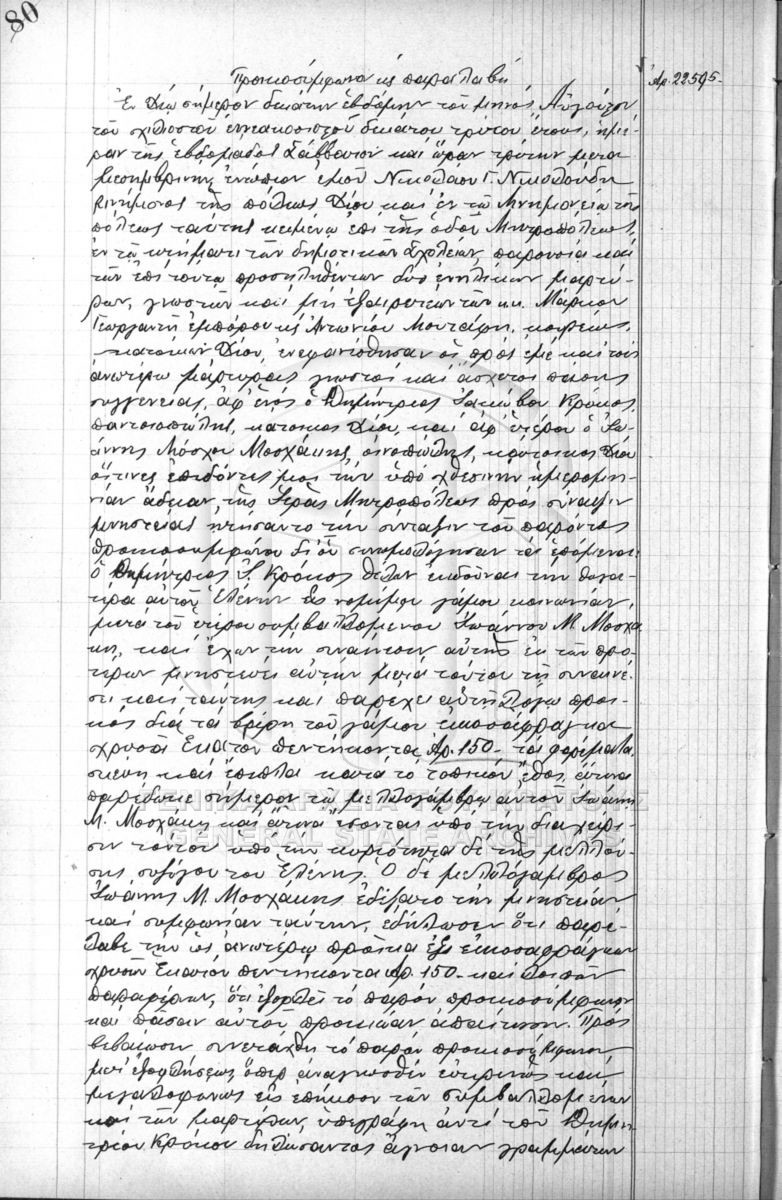 80
Προικοσύμφωνον κ παραλαβή
Αρ. 22595-
Ἐν Χίῳ σήμερον δεκάτην ἑβδόμην τοῦ μηνός Αὐγούστου
τοῦ χιλιοστοῦ ἐννεακοσιοστοῦ δεκάτου τρίτου ἔτους, ἡμέ-
ραν τῆς ἑβδομάδος Σάββατον καὶ ὥραν τρίτην μετα
μεσημβρινήν ἐνώπιον ἐμοῦ Νικολάου Γ. Νικολούδη
μνήμονος τῆς πόλεως Χίου καὶ ἐν τῷ Μνημονείῳ τῆς
πόλεως ταύτης κειμένῳ ἐπὶ τῆς ὁδοῦ Μητροπόλεως,
ἐν τῷ κτήματι τῶν δημοτικῶν Σχολείων, παρουσίᾳ καὶ
τῶν ἐπὶ τούτῳ προσκληθέντων δύο ἐνηλίκων μαρτύ-
ρων, γνωστῶν καὶ μὴ ἐξαιρετέων τῶν κ.κ. Μάρκου
Γεωργαντῆ ἐμπόρου κ Ἀντωνίου Μουτάφη, κουρέως,
κατοίκων Χίου, ἐνεφανίσθησαν ὡς πρὸς ἐμὲ καὶ τοὺς
ἀνωτέρω μάρτυρας γνωστοὶ καὶ ἄσχετοι πάσης
συγγενείας, ἀφ' ἑνὸς ὁ Δημήτριος Ἰακώβου Κρόκος,
παντοπώλης, κάτοικος Χίου, καὶ ἀφ' ἑτέρου ὁ Ἰω-
άννης Μόσχου Μοσχάκης, οἰνοπώλης, κάτοικος Χίου
οἵτινες ἐπιδόντες μοι τὴν ὑπὸ χθεσινὴν ἡμερομη-
νίαν ἄδειαν τῆς Ἱερᾶς Μητροπόλεως πρὸς σύναψιν
μνηστείας ᾐτήσαντο τὴν σύνταξιν τοῦ παρόντος
προικοσυμφώνου δι' οὗ συνωμολόγησαν τὰ ἑπόμενα:
ὁ Δημήτριος Ἰ. Κρόκος θέλων ἐκδοῦναι τὴν θυγα-
τέρα αὐτοῦ Ἑλένην εἰς νομίμου γάμου κοινωνίαν,
μετὰ τοῦ ἑτέρου συμβαλλομένου Ἰωάννου Μ. Μοσχά
κη, καὶ ἔχων τὴν συναίνεσιν αὐτῆς ἐκ τῶν προ-
τέρων μνηστεύει αὐτὴν μετὰ τούτου τῇ συναινέ-
σει καὶ ταύτης καὶ παρέχει αὐτῇ λόγῳ προι-
κὸς διὰ τὰ βάρη τοῦ γάμου εἰκοσάφραγκα
χρυσᾶ Ἑκατὸν πεντήκοντα Ἀρ. 150- τὰ φορέματα
σκεύη καὶ ἔπιπλα κατὰ τὸ τοπικὸν ἔθος, ἅτινα
παρέδωκε σήμερον τῷ μελλογάμβρῳ αὐτοῦ Ἰωάννῃ
Μ. Μοσχάκῃ καὶ ἅτινα ἔσονται ὑπὸ τὴν διαχείρι-
σιν τούτου ὑπὸ τὴν κυριότητα δὲ τῆς μελλού-
σης συζύγου του Ἑλένης. Ὁ δὲ μελλόγαμβρος
Ἰωάννης Μ. Μοσχάκης ἐδέξατο τὴν μνηστείαν
καὶ συμφωνίαν ταύτην, ἐδήλωσεν ὅτι παρέ-
λαβε τὴν ὡς ἀνωτέρω προῖκα ἐξ εἰκοσαφράγκων
χρυσῶν Ἑκατὸν πεντήκοντα Ἀρ. 150- καὶ λοιπῶν
ὅτι ἐξοφλεῖ τὸ παρὸν προικοσύμφωνον
καὶ πᾶσαν αὐτοῦ προικῴαν ἀπαίτησιν. Πρὸς
βεβαίωσιν συνετάχθη τὸ παρὸν προικοσύμφωνον
μετ' ἐξοφλήσεως, ὅπερ ἀναγνωσθὲν εὐκρινῶς καὶ
μεγαλοφώνως εἰς ἐπήκοον τῶν συμβαλλομένων
καὶ τῶν μαρτύρων, ὑπεγράφη ἀντὶ τοῦ Δημη-
τρίου Κρόκου δηλώσαντος ἄγνοιαν γραμμάτων
ΓΕΝΙΚΑ ΑΡΧΕΙΑ ΤΟΥ ΚΡΑΤΟΥΣ
GENERAL STATE ARCHIVES